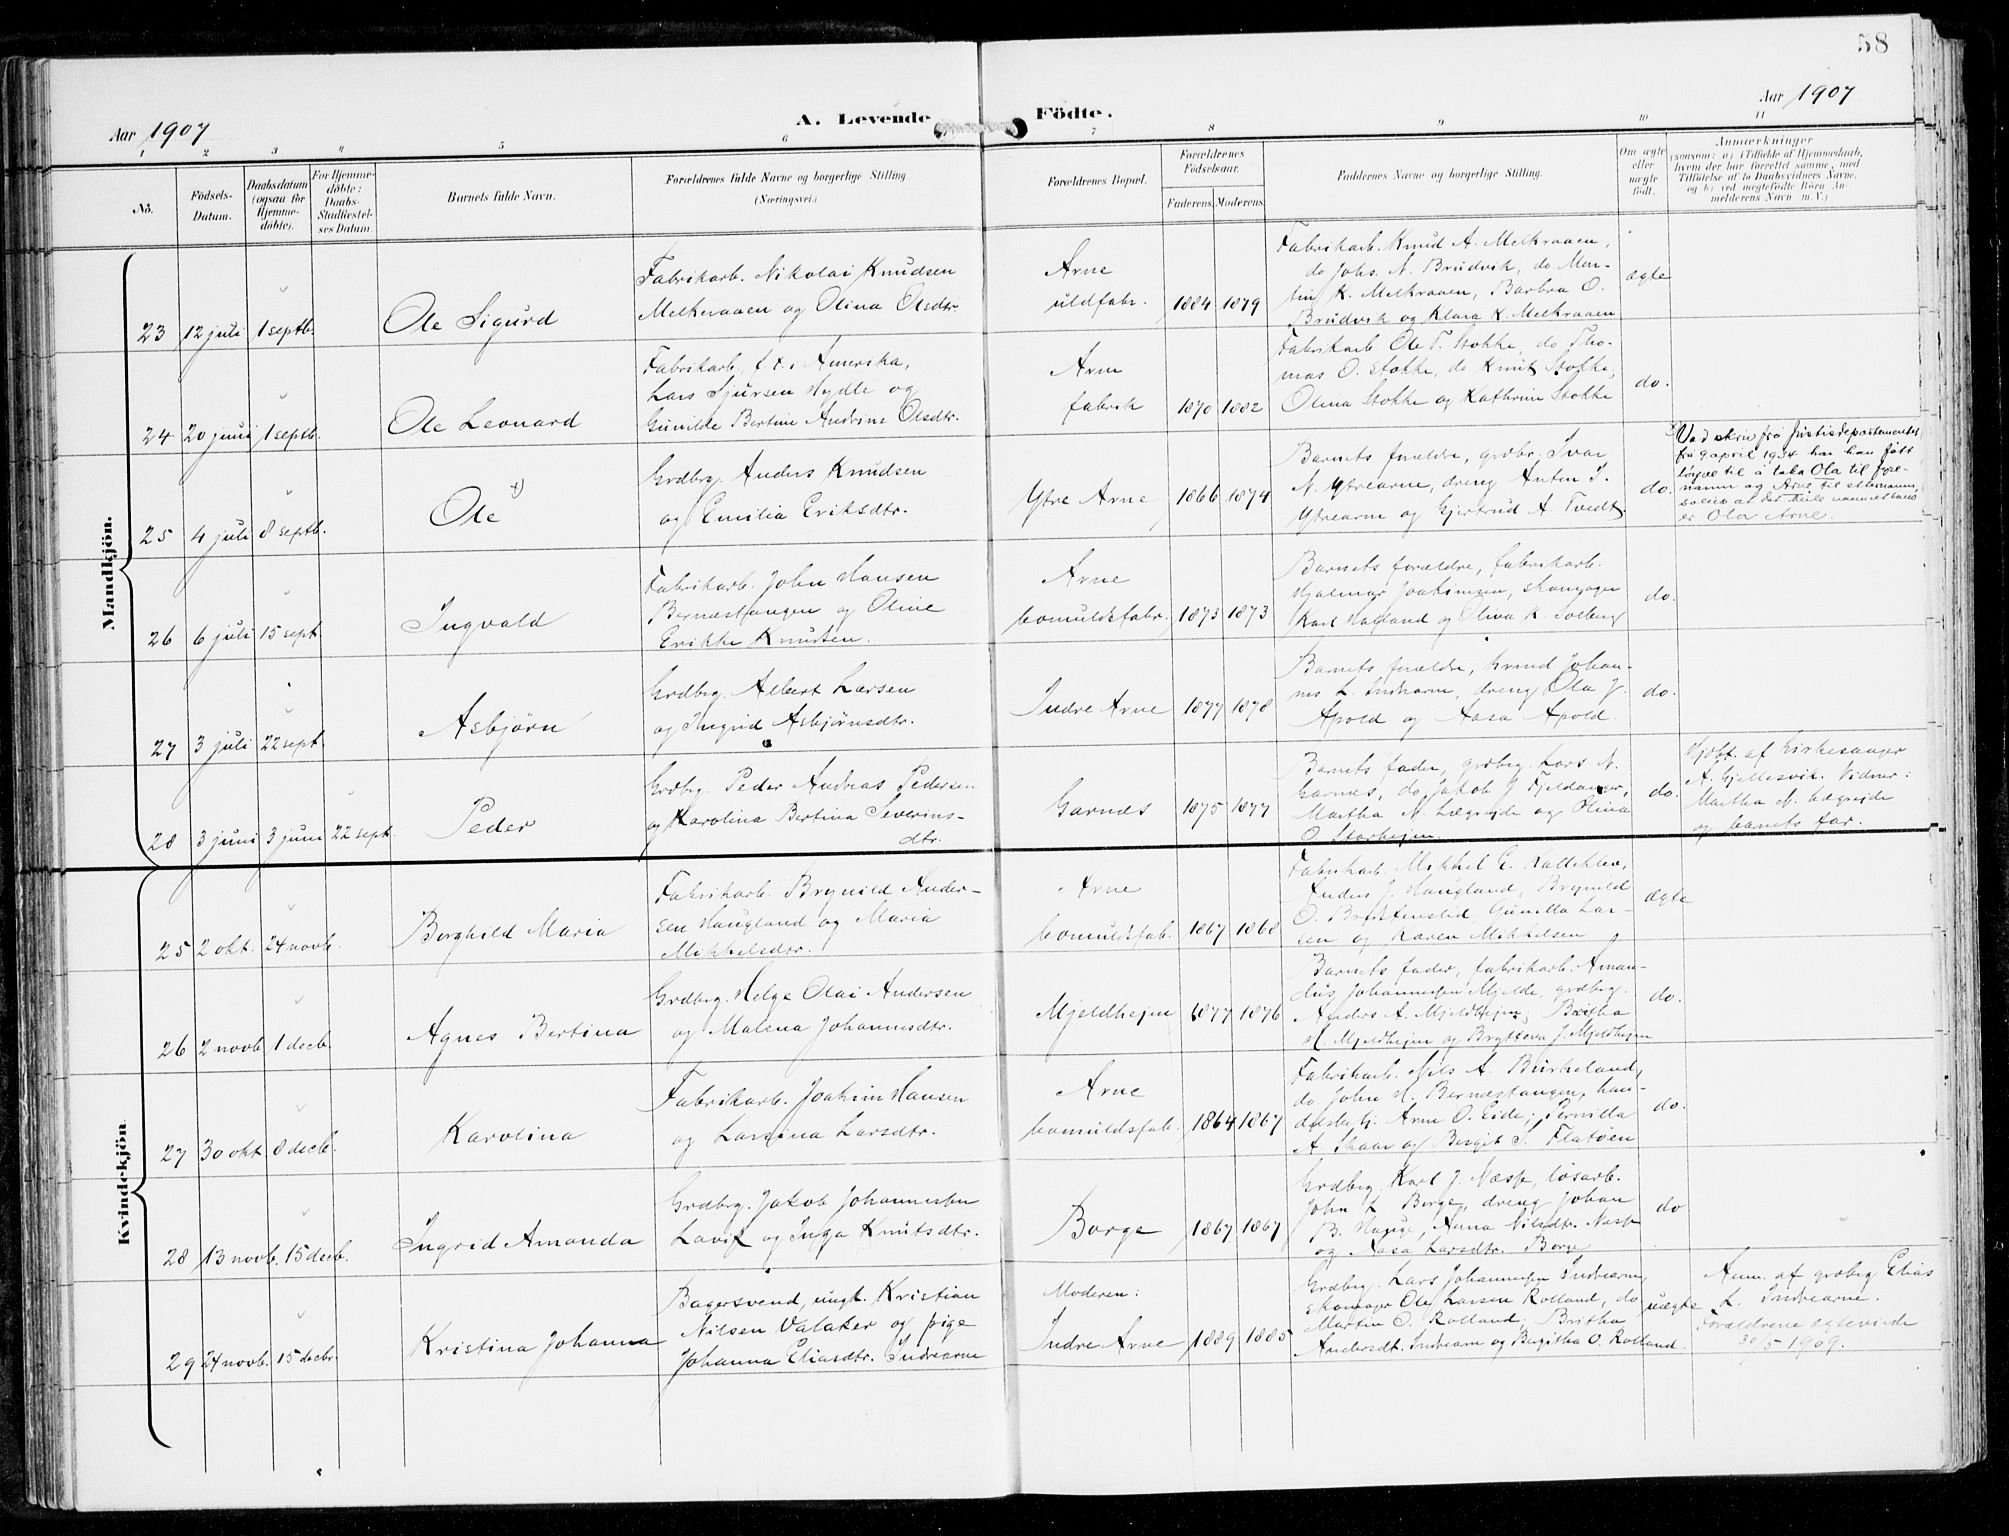 58
Aar 1907
A. Levende Födte.
Aar 1907
1 2 3 4 5 6 7 8 9 10 11
No.
Födsels-Datum.
Daabsdatum (ogsaa for Hjemmedöbte).
For Hjemmedöbte: Daabs-Stadfæstelses Datum.
Barnets fulde Navn.
Forældrenes fulde Navne og borgerlige Stilling.
(Næringsvei.)
Forældrenes Bopæl.
Forældrenes Födselsaar.
Faderens. Moderens.
Faddernes Navne og borgerlige Stilling.
Om ægte eller uægte födt.
Anmærkninger
(saasom: a) i Tilfælde af Hjemmedaab, hvem der har forrettet samme, med Tilföielse af to Daabsvidners Navne, og b) ved uægtefödte Börn Anmelderens Navn m.V.)
Mandkjön.
23 12 juli 1 septb. Ole Sigurd
Fabrikarb. Nikolai Knudsen
Melkeraaen og Olina Olsdtr.
Arne
uldfabr. 1884 1879
Fabrikarb. Knud A. Melkraaen,
do Johs. N. Brudvik, do Mon-
tin K. Melkraaen, Barbra O.
Brudvik og Klara K. Melkraaen
ægte
24 20 juni 1 septb. Ole Leonard
Fabrikarb., f. t. i Amerika,
Lars Sjursen Hydle og
Gunilde Bertine Andrine Olsdtr.
Arne
fabrik 1870 1882
Fabrikarb. Ole T. Stokke, do Tho-
mas O. Stokke, do Knut Stokke,
Olena Stokke og Kathrine Stokke
do.
25 4 juli 8 septb. Ole x)
Grdbrg. Anders Knudsen
og Emilia Eriksdtr.
Ytre Arne 1866 1874
Barnets forældre, grdbr. Ivar
N. Ytrearne, dreng Anton I.
Ytrearne og Gjertrud A. Tvedt.
do.
x) Ved skriv frå Justisdepartementet
frå 9 april 1934 har han fått
løyve til å taka Ola til fyre-
namn og Arne til etternamn,
soleis at det heile namnet hans
er Ola Arne.
26 6 juli 15 sept. Ingvald
Fabrikarb. John Hansen
Bernestangen og Oline
Erikke Knudsen.
Arne
bomuldsfabr. 1873 1873
Barnets forældre, fabrikarb.
Hjalmar Joakimsen, skomager
Karl Hagland og Oliva K. Solberg
do.
27 3 juli 22 sept. Asbjørn
Grdbrg. Albert Larsen
og Ingrid Asbjørnsdtr.
Indre Arne 1877 1878
Barnets forældre, Johan-
nes L. Indrearne, dreng Ola J.
Apold og Aasa Apold.
do.
28 3 juni 3 juni 22 sept. Peder
Grdbrg. Peder Andreas Pedersen
og Karolina Bertina Severins-
dtr.
Garnes 1875 1877
Barnets fader, grdbrg. Lars N.
Garnes, do Jakob J. Fjeldanger,
Martha N. Lægreide og Olina
O. Storhejen.
do.
Hjdbt. af kirkesanger
A. Gjellesvik. Vidner:
Martha N. Lægreide
og barnets far.
Kvindekjön.
25 2 okt. 24 novb. Borghild Maria
Fabrikarb. Brynild Ander-
sen Haugland og Maria
Mikkelsdtr.
Arne
bomuldsfab. 1867 1868
Fabrikarb. Mikkel E. Kalleklev,
Anders J. Haugland, Brynild
O. Breistenslid, Gunilla Lar-
sen og Karen Mikkelsen
ægte
26 2 novb. 1 decb. Agnes Bertina
Grdbrg. Helge Olai Andersen
og Malena Johannesdtr.
Mjeldhejen 1877 1876
Barnets fader, fabrikarb. Aman-
dus Johannessen Mjelde, grdbrg.
Anders A. Mjeldhejen, Britha
H. Mjeldhejen og Brytteva J. Mjeldhejen
do.
27 30 okt 8 decb. Karolina
Fabrikarb. Joakim Hansen
og Larsina Larsdtr.
Arne
bomuldsfab. 1864 1867
Fabrikarb. Nils A. Birkeland,
do. John H. Bernestangen, han-
delsbetj. Arne O. Eide, Pernilla
A. Skaar og Bergit S. Flatøen
do.
28 13 novb. 15 decb. Ingrid Amanda
Grdbrg. Jakob Johannessen
Lavik og Inga Knutsdtr.
Borge 1867 1867
Grdbrg. Karl J. Næsse, løsarb.
John L. Borge, dreng Johan
B. Hauge, Anna Nilsdtr. Næsse
og Aasa Larsdtr. Borge
do
29 24 novb. 15 decbr. Kristina Johanna
Bagersvend, ungk. Kristian
Nilsen Valaker og pige
Johanna Eliasdtr. Indrearne
Moderen:
Indre Arne 1889 1885
Grdbrg. Lars Johannessen Indrearne,
skomager Ole Larsen Rolland, do
Martin O. Rolland, Britha
Andersdt. Indrearne og Bergitha O. Rolland.
uægte
Anm. af grdbrg. Elias
L. Indrearne.
Forældrene ægteviede
30/5 1909.